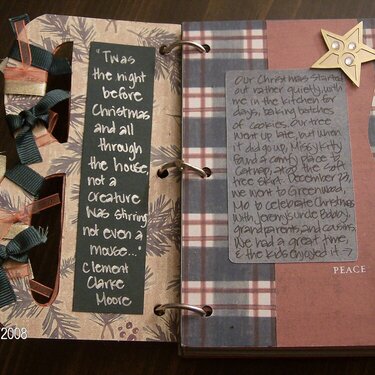 "Twas
the night
before
Christmas
and all
through
the house,
not a
creature
was stirring
not even a
mouse..."
Clement
Clarke
Moore
Our Christmas started
out rather quietly, with
me in the kitchen for
days, baking batches
of cookies. Our tree
went up late, but when
it did go up, Miss Kitty
found a comfy place to
catnap, atop the soft
tree skirt. December 23,
we went to Greenwood,
Mo to celebrate Christmas
with Jeremy's uncle Bobby,
grandparents, and cousins.
We had a great time,
& the kids enjoyed it →
PEACE
2008